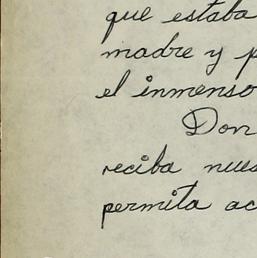 que estaba
madre y p
el inmenso
Don
reciba nues
permita ac